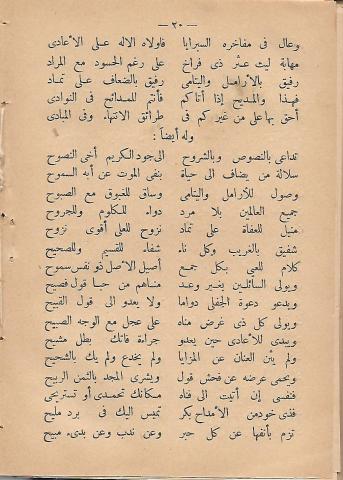 — ٣٠ —
وعال فى مفاخره السرايا فأولاه الاله على الأعادى
مهابة ليث عثر ذى فراخ على رغم الحسود مع المراد
رفيق بالأرامل واليتامى رفيق بالضعاف على تماد
فهذا والمديح إذا أتاكم فأنتم للمدائح فى النوادى
أحق بها على من غيركم فى طرائق الانتها. وفى المبادى
وله أيضاً :
تداعى بالنصوص وبالشروح الى جود الكريم أخى النصوح
سلالة من يضاف الى حياة بنفى الموت عن أبه السموح
وصول للأرامل واليتامى وساق للغبوق مع الصبوح
جميع العالمين بلا مرد دواء للكلوم وللجروح
منيل للعفاة على تماد نزوح للعلى أقوى نزوح
شفيق بالغريب وكل ناء شفاء للقسيم وللصحيح
كلام للعى بكل جمع أصيل الأصل ذو نفس سموح
ويولى السائلين بغير وعد مناهم من حيا قول فصيح
ويدعو دعوة الجفلى دواما ولا يعدو الى قول القبيح
ويولى كل ذى غرض مناه على عجل مع الوجه الصبيح
ويبدى للأعادى حين يعدو جراءة فاتك بطل مشيح
ولم يثن العنان عن المزايا ولم يخدع ولم يك بالشحيح
ويحمى عرضه عن فحش قول ويشرى المجد بالثمن الربيح
فنفسى إن أتيت الى فناه مكانك تحمدى أو تستريحى
فذى خود من الأمداح بكر تميس اليك فى برد مليح
تزم بأنفها عن كل حبر وعن ندب وعن بدىء مبيح